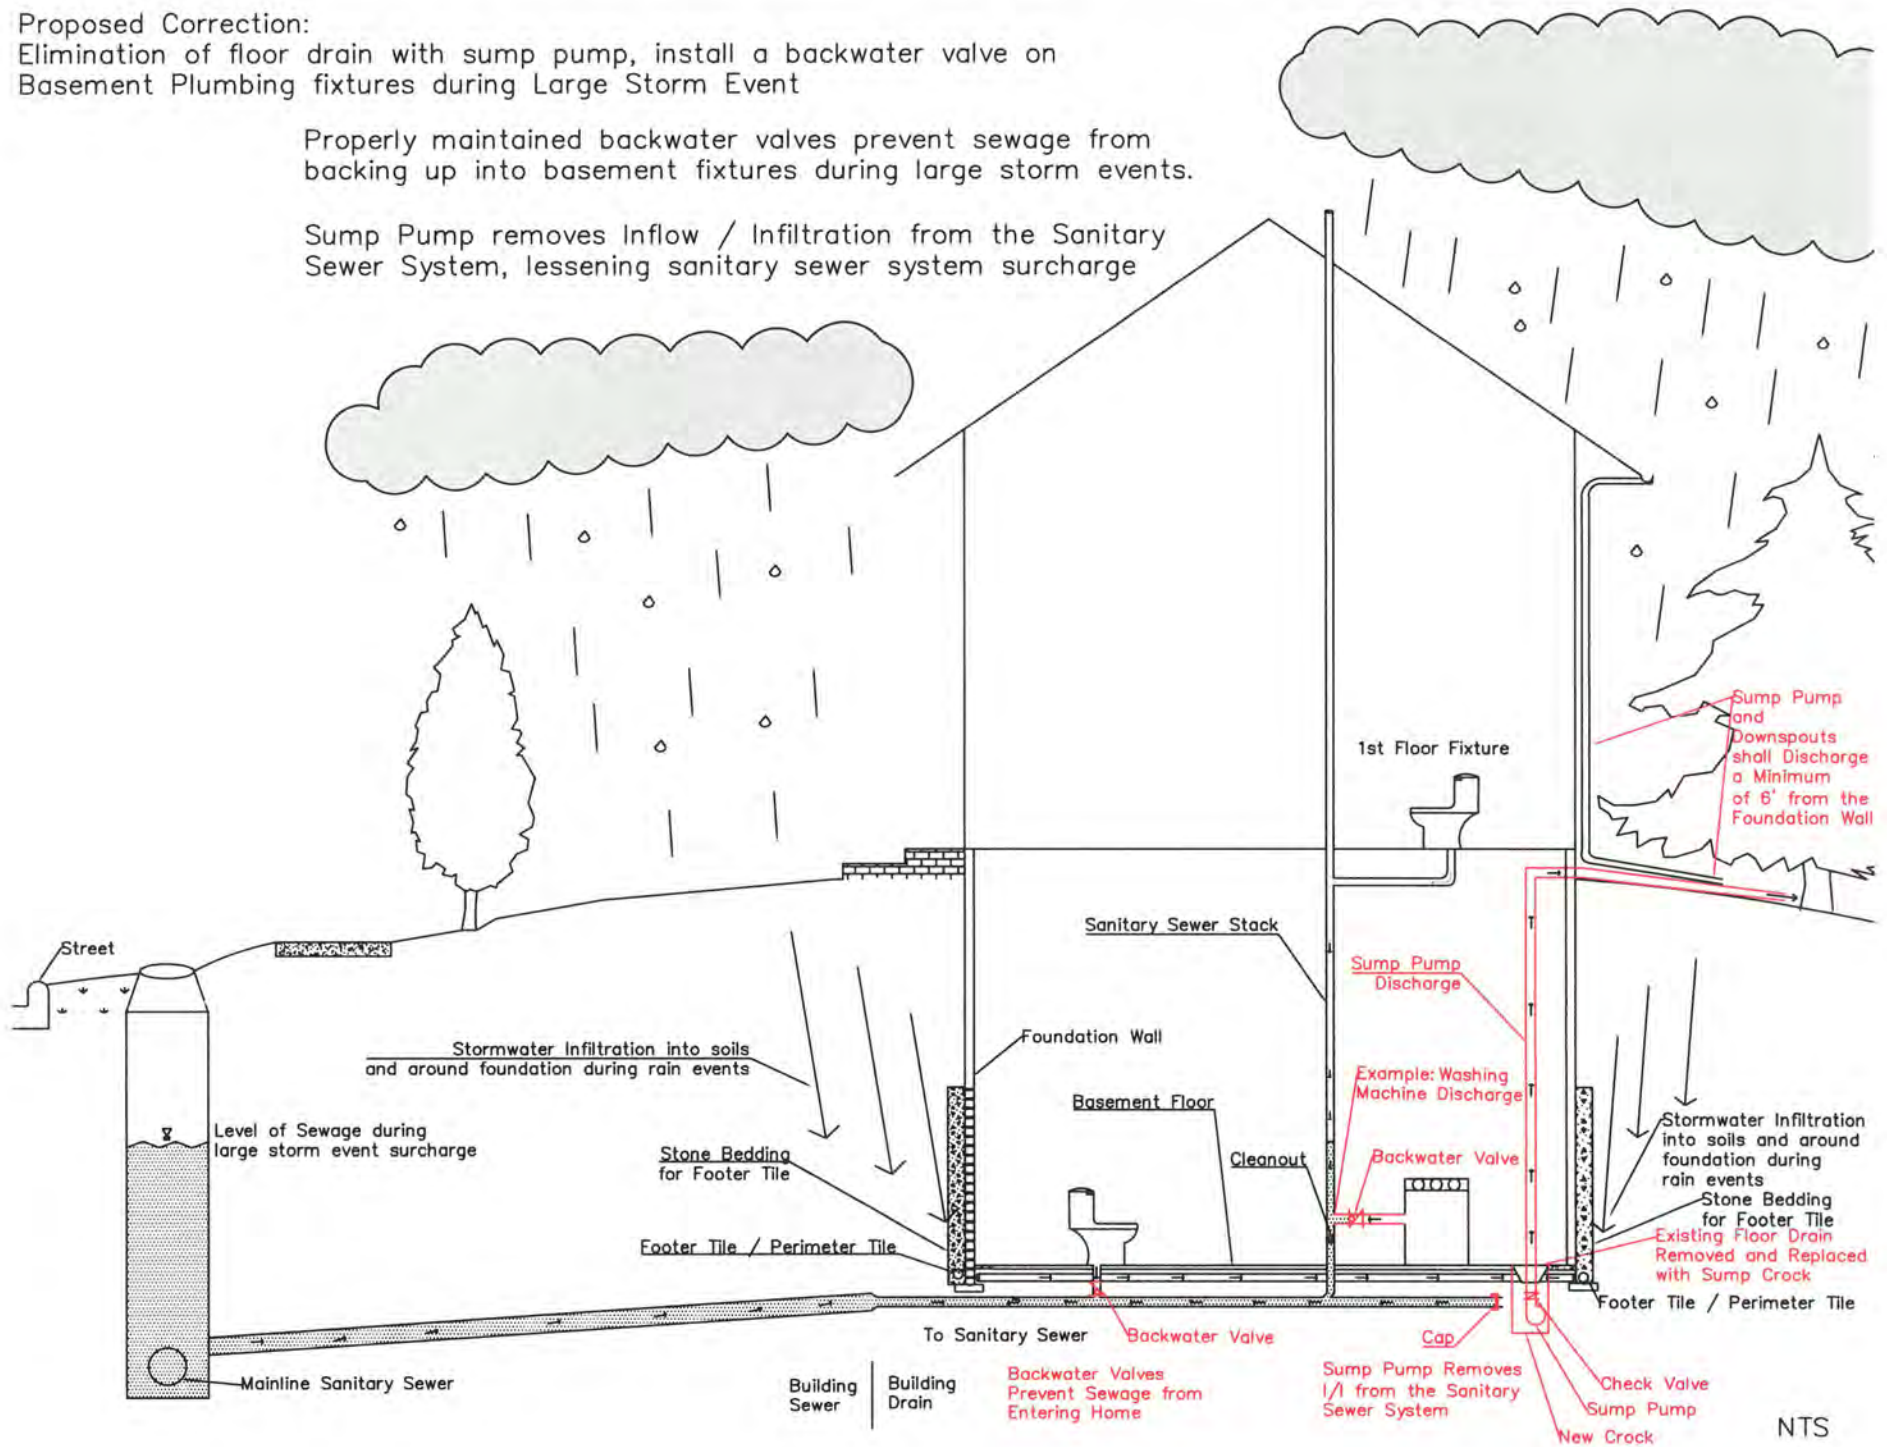 Proposed Correction:
Elimination of floor drain with sump pump, install a backwater valve on
Basement Plumbing fixtures during Large Storm Event
Properly maintained backwater valves prevent sewage from
backing up into basement fixtures during large storm events.
Sump Pump removes Inflow / Infiltration from the Sanitary
Sewer System, lessening sanitary sewer system surcharge
Sump Pump
and
Downspouts
shall Discharge
a Minimum
of 6' from the
Foundation Wall
1st Floor Fixture
Street
Sanitary Sewer Stack
Sump Pump
Discharge
Stormwater Infiltration into soils
and around foundation during rain events
Foundation Wall
Example: Washing
Machine Discharge
Basement Floor
Level of Sewage during
large storm event surcharge
Stone Bedding
for Footer Tile
Cleanout
Backwater Valve
Stormwater Infiltration
into soils and around
foundation during
rain events
Stone Bedding
for Footer Tile
Footer Tile / Perimeter Tile
Existing Floor Drain
Removed and Replaced
with Sump Crock
Footer Tile / Perimeter Tile
To Sanitary Sewer
Backwater Valve
Cap
Mainline Sanitary Sewer
Building
Sewer
Building
Drain
Backwater Valves
Prevent Sewage from
Entering Home
Sump Pump Removes
I/I from the Sanitary
Sewer System
Check Valve
Sump Pump
New Crock
NTS